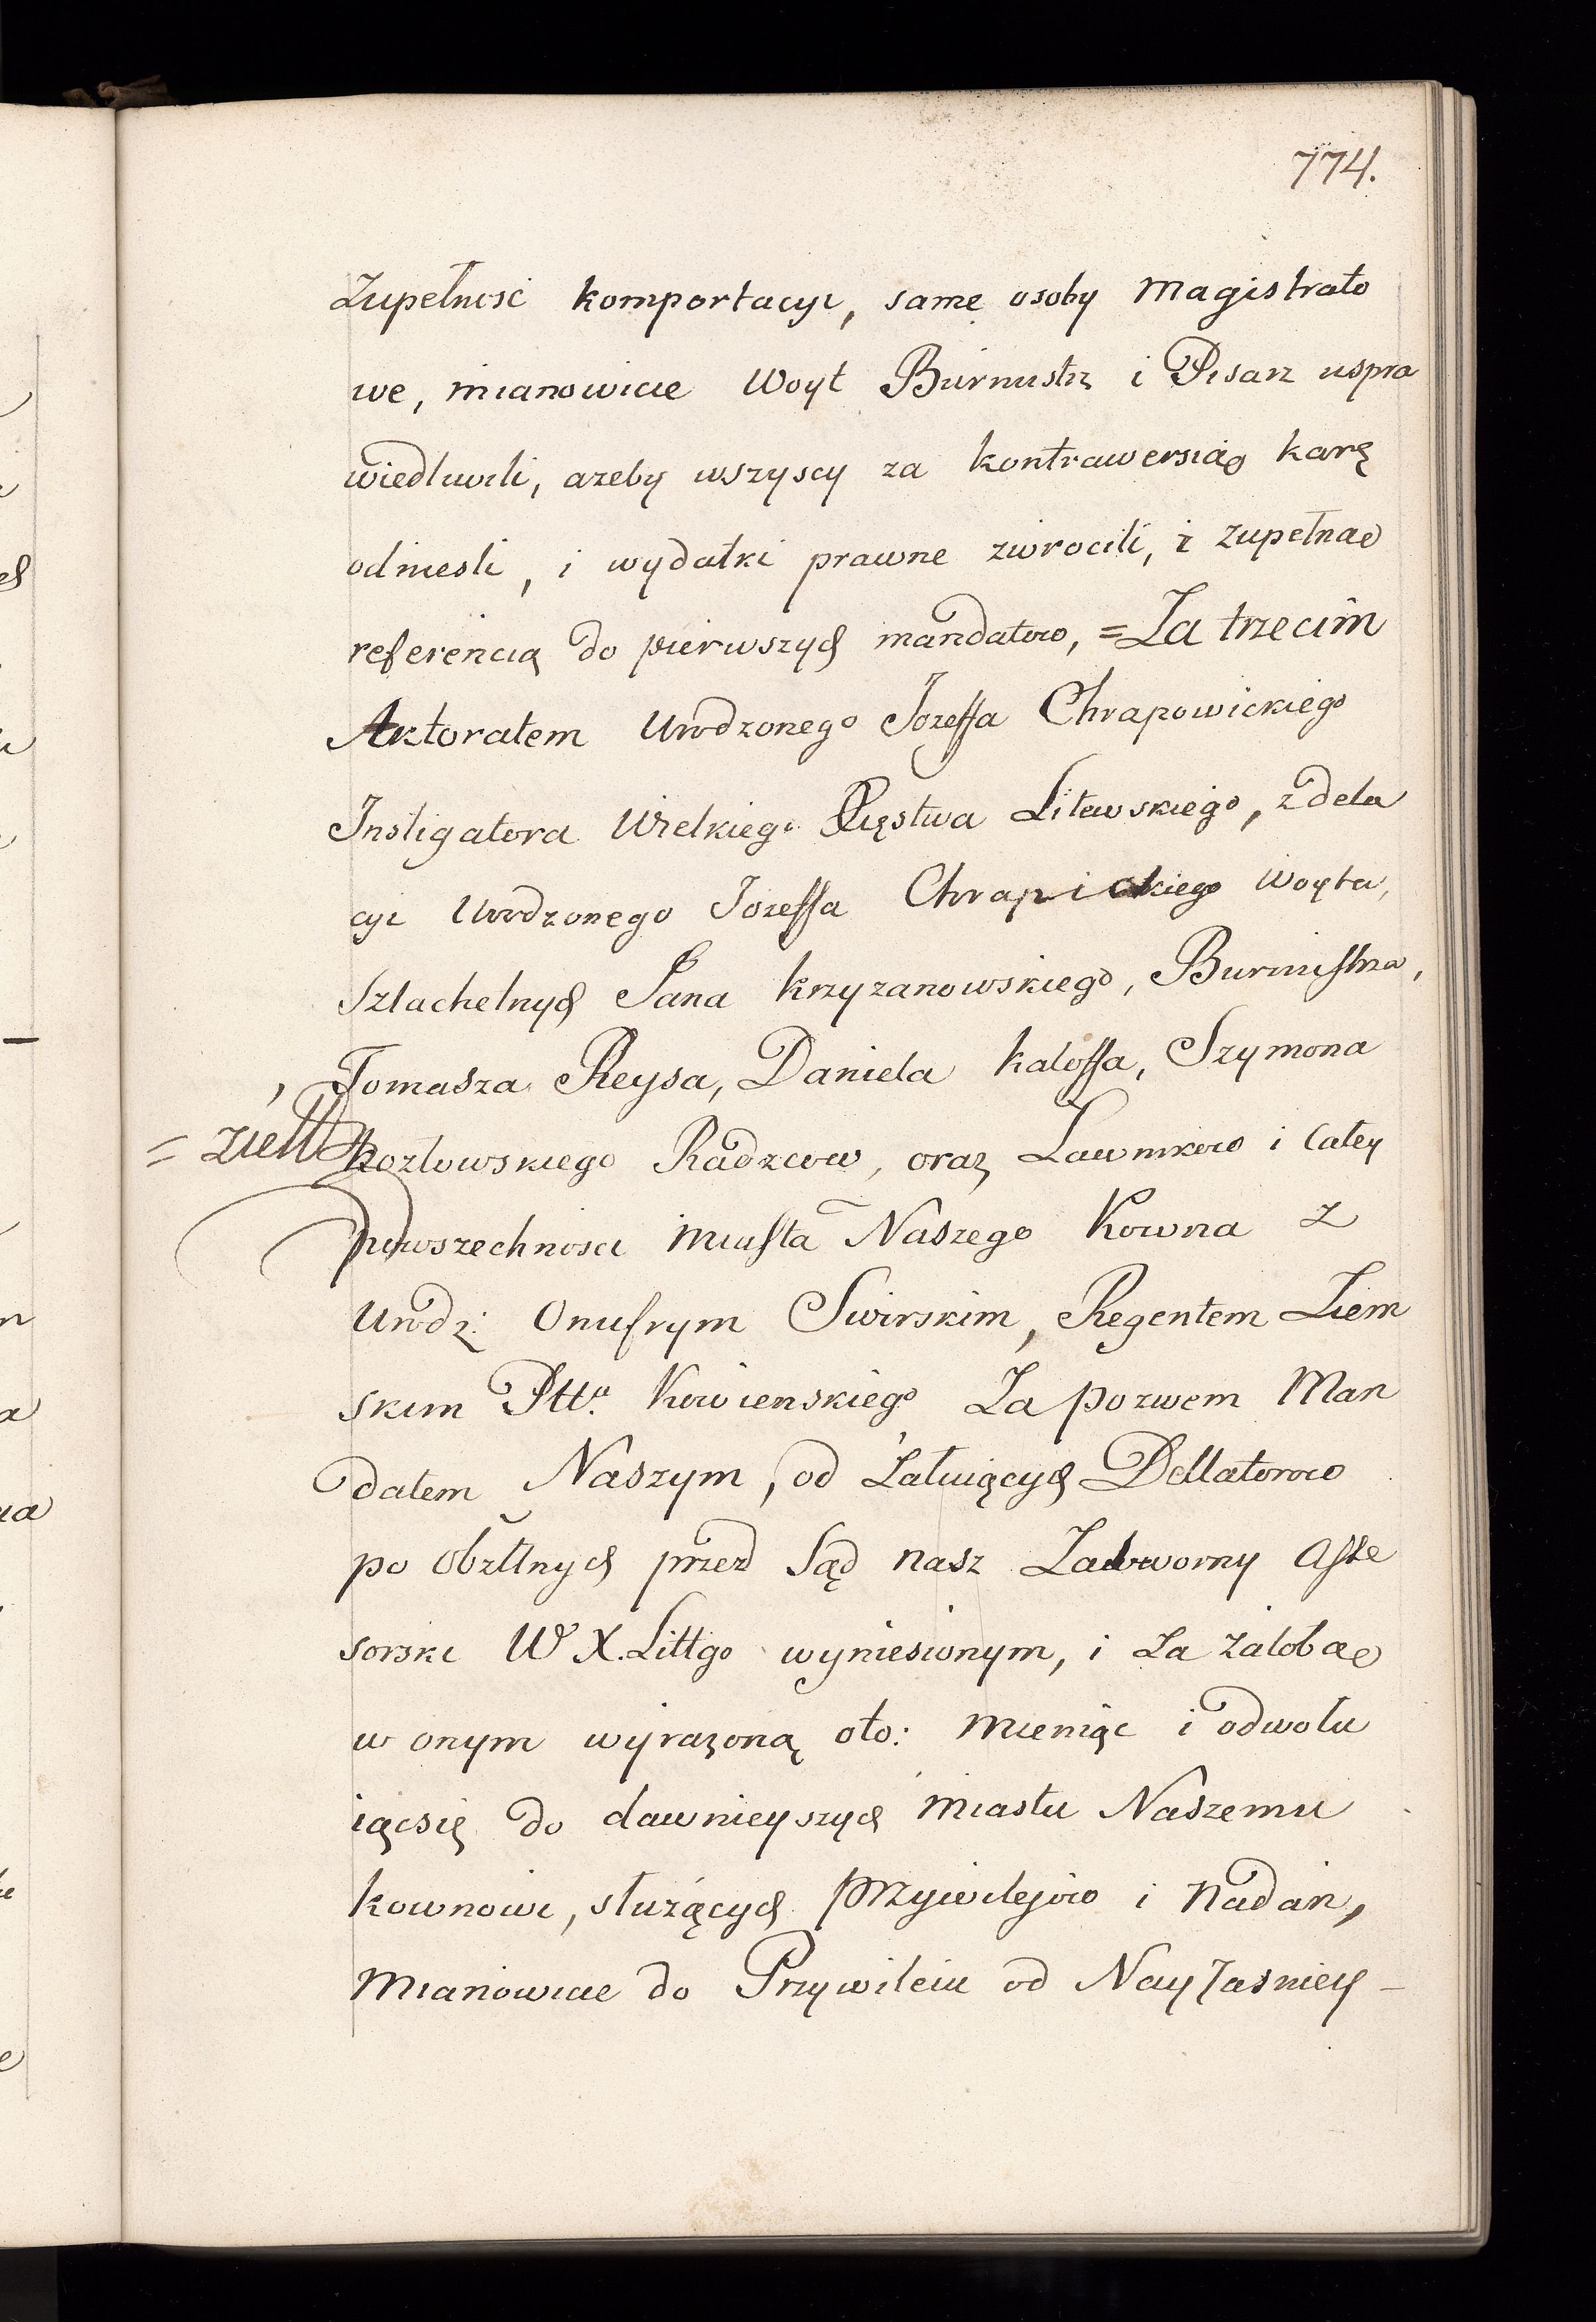 774.
Zupełność komportacyi, same osoby Magistrato
we, mianowicie Woyt Burmistrz i Pisarz uspra
wiedliwili, azeby wszyscy za kontrawersią karę
odniesli, i wydatki prawne zwrocili, z zupełną
referencią do pierwszych mandatow, = Za trzecim
Aktoratem Urodzonego Jozeffa Chrapowickiego
Instigatora Wielkiego Xięstwa Litewskiego, z dela
cyi Urodzonego Jozeffa Chrapickiego Woyta,
Szlachetnych Jana Krzyzanowskiego, Burmistrza,
Tomasza Reysa, Daniela Kaloffa, Szymona
= Ziem
Kozłowskiego Radzcow, oraz Ławnikow i Całey
powszechnosci Miasta Naszego Kowna z
Urodz: Onufrym Swirskim, Regentem Ziem
skim Pttu. Kowienskiego Za pozwem Man
datem Naszym, od Załuiących Dellatorow
po Obżłnych przed Sąd nasz Zadworny Asse
sorski W X. Littgo wyniesionym, i Za żalobą
w onym wyrazoną oto: Mieniąc i odwołu
iącsię do dawnieyszych Miastu Naszemu
Kownowi, służących Przywilejow i Nadan,
Mianowicie do Przywileiu od NayJasniey-